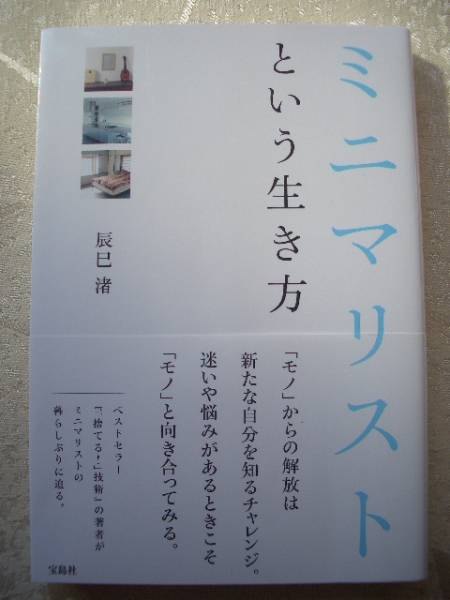 ミニマリスト
という生き方
辰巳 渚
「モノ」からの解放は
新たな自分を知るチャレンジ。
迷いや悩みがあるときこそ
「モノ」と向き合ってみる。
ベストセラー
『「捨てる！」技術』の著者が
ミニマリストの
暮らしぶりに迫る。
宝島社